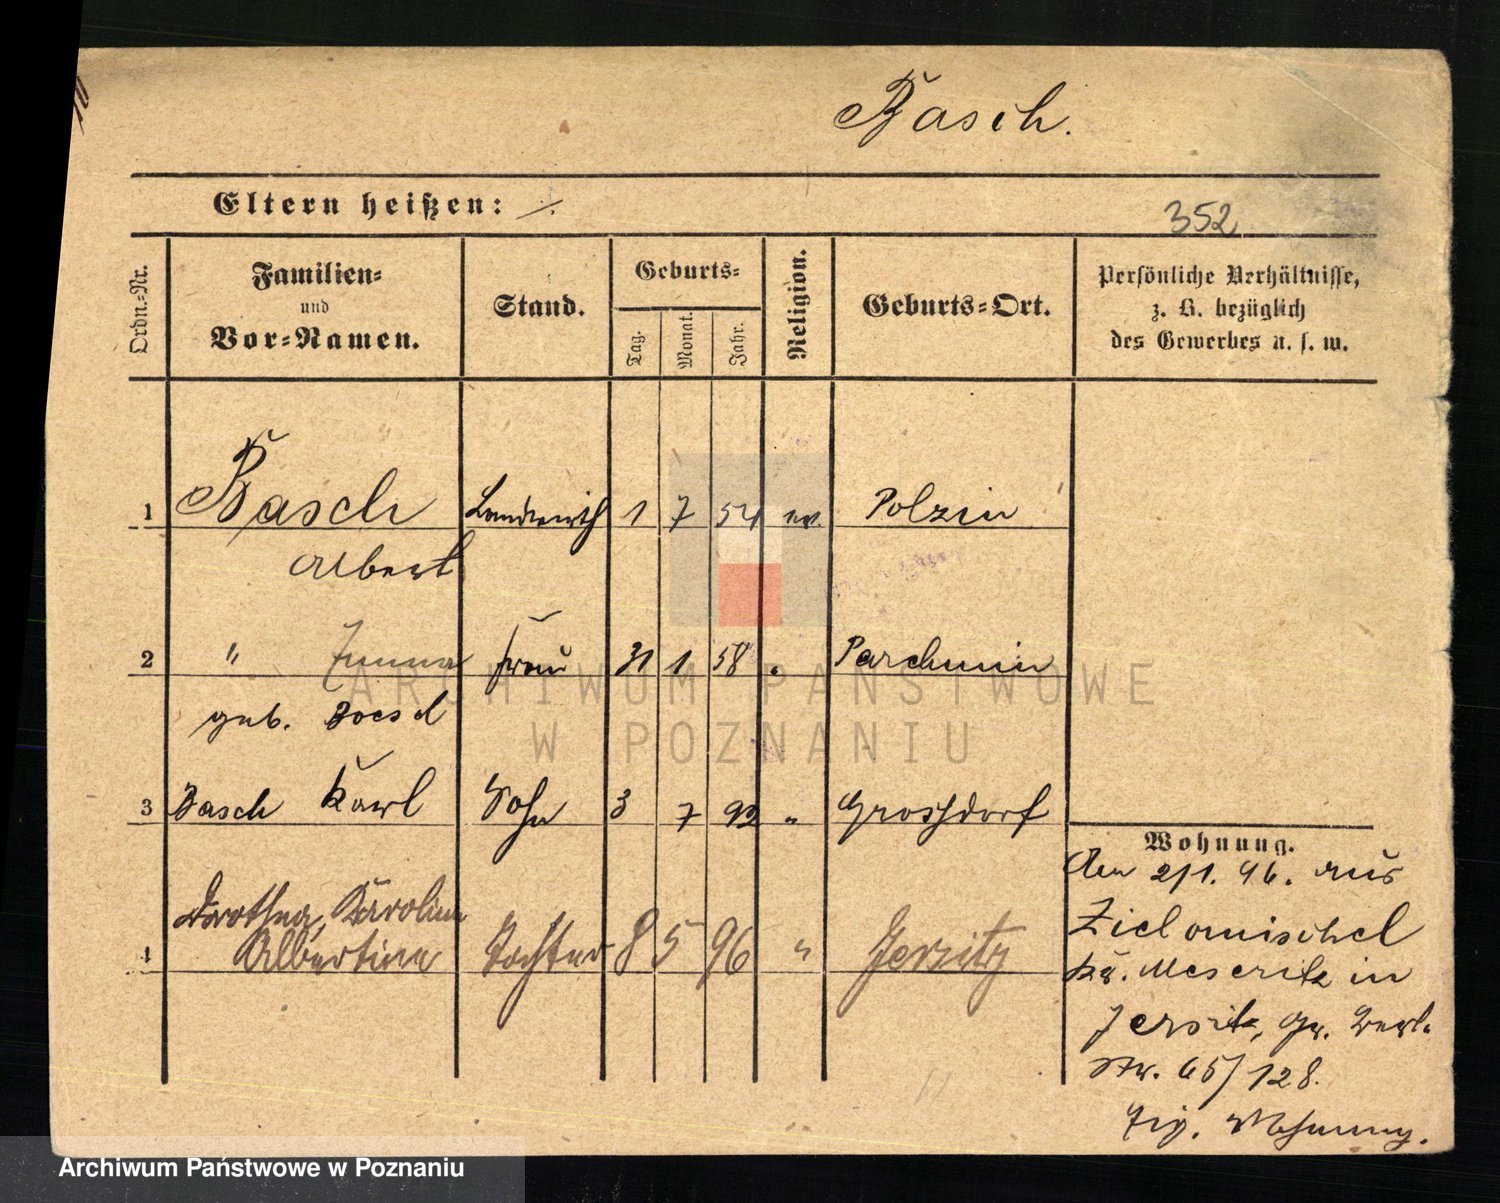 Basch.
Eltern heißen: ./.
352
Ordn.-Nr.
Familien-
und
Vor-Namen.
Stand.
Geburts-
Tag.
Monat.
Jahr.
Religion.
Geburts-Ort.
Persönliche Verhältnisse,
z. B. bezüglich
des Gewerbes u. s. w.
1 Basch Landwirth 1 7 54 ev. Polzin
Albert
2 " Emma Frau 31 1 58 " Parchmin
geb.
3 Basch Karl Sohn 3 7 92 " Grossdorf
Dorothea, Karoline
4 Albertine Tochter 8 5 96 " Jersitz
Wohnung.
Am 2/1. 96. aus
Zielomischel
Kr. Meseritz in
Jersitz, Gr. Berl.
Str. 65/128.
Eig. Wohnung.
ARCHIWUM PAŃSTWOWE
W POZNANIU
Archiwum Państwowe w Poznaniu